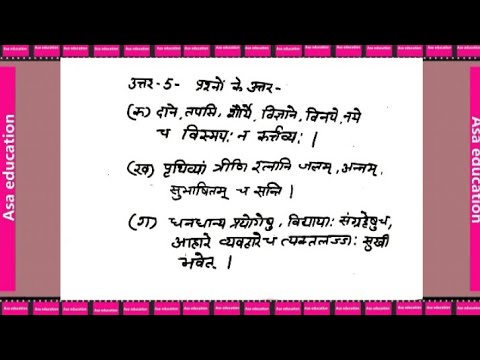 उत्तर-5- प्रश्नों के उत्तर-
(क) दाने, तपसि, शौर्ये, विज्ञाने, विनये, नये
च विस्मयः न कर्त्तव्यः।
(ख) पृथिव्यां त्रीणि रत्नानि जलम्, अन्नम्,
सुभाषितम् च सन्ति।
(ग) धनधान्य प्रयोगेषु, विद्यायाः संग्रहेषु च,
आहारे व्यवहारे च त्यक्तलज्जः सुखी
भवेत्।
Asa education
Asa education